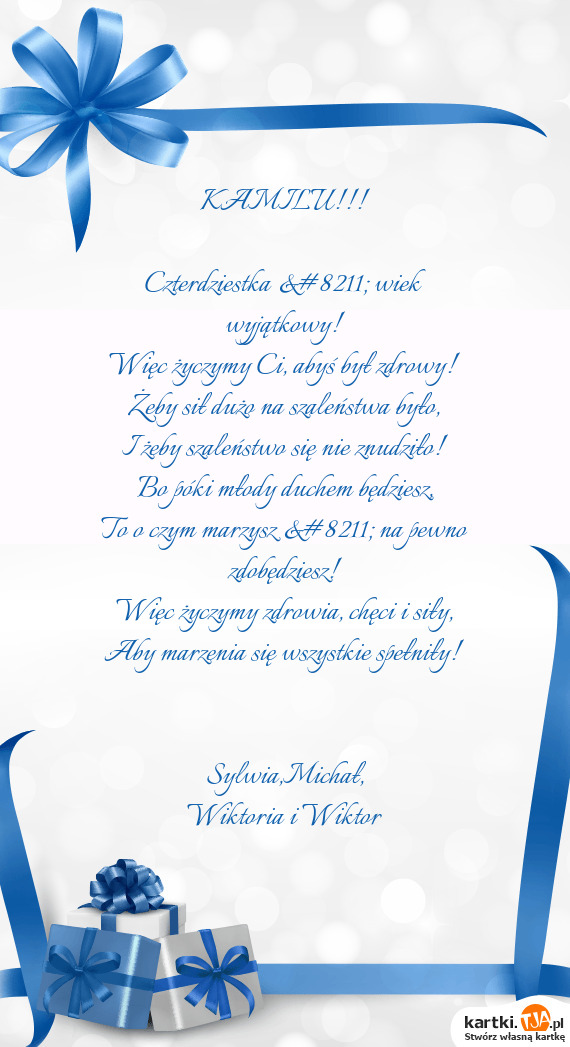 KAMILU!!!
Czterdziestka &#8211; wiek
wyjątkowy!
Więc życzymy Ci, abyś był zdrowy!
Żeby sił dużo na szaleństwa było,
I żeby szaleństwo się nie znudziło!
Bo póki młody duchem będziesz,
To o czym marzysz &#8211; na pewno
zdobędziesz!
Więc życzymy zdrowia, chęci i siły,
Aby marzenia się wszystkie spełniły!
Sylwia,Michał,
Wiktoria i Wiktor
kartki.TJA.pl
Stwórz własną kartkę